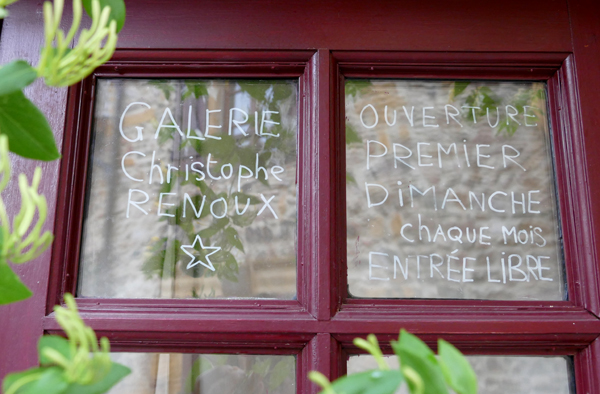 GALERIE
Christophe
RENOUX
OUVERTURE
PREMIER
DiMANCHE
CHAQUE MOIS
ENTRÉE LIBRE